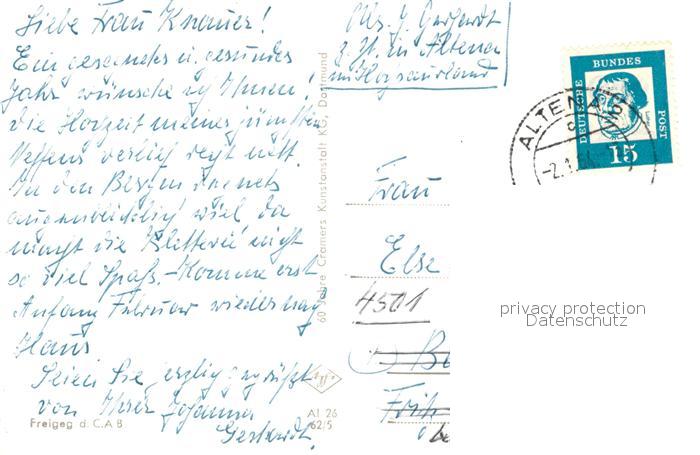 Liebe Frau Knauer!
Ein gesegnetes u. gesundes
Jahr wünsche ich Ihnen!
Die Hochzeit meines jüngsten
Neffens verlief recht nett.
In den Bergen
augenblicklich viel da
macht die Kletterei nicht
so viel Spaß. - Komme erst
Anfang Februar wieder nach
Haus
Seien Sie herzlich gegrüßt
von Ihrer Johanna
Gerhardt.
Abs. J. Gerhardt
z. Zt. in Altena
im Hochsauerland
60 Jahre Cramers Kunstanstalt KG, Dortmund
DEUTSCHE BUNDES POST
15
ALTENA
-2.1.
Frau
Else
4501
privacy protection
Datenschutz
Freigeg. d. C.A B
Al 26
62/5